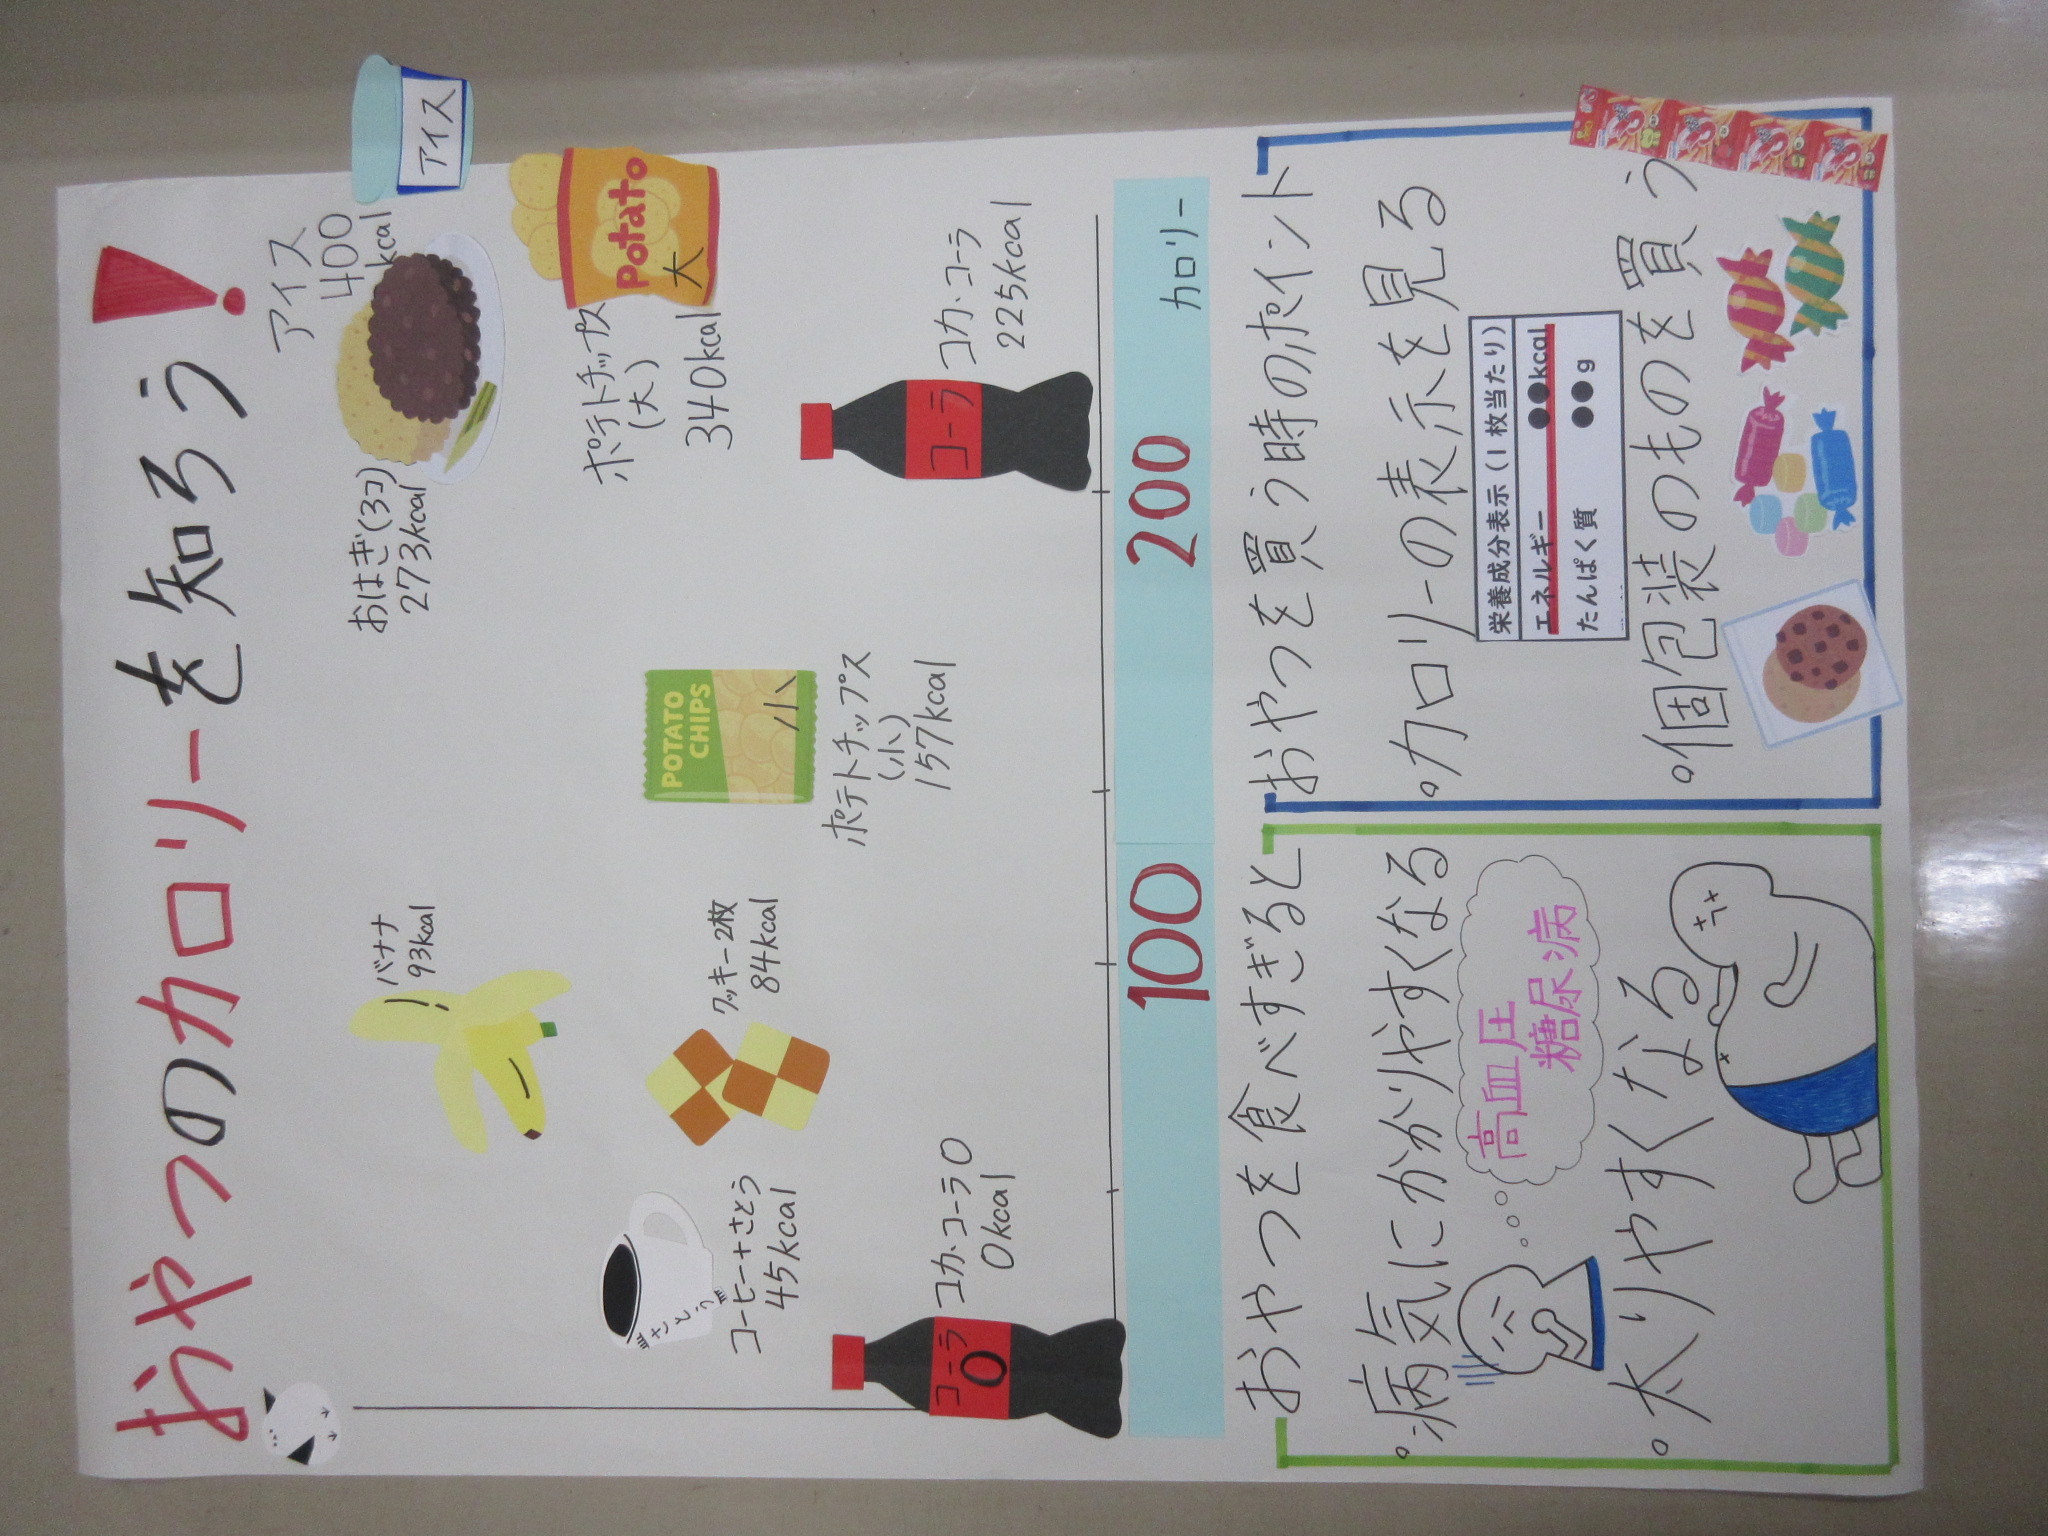 おやつのカロリーを知ろう!
バナナ
93kcal
おはぎ(3コ)
273kcal
アイス
400
kcal
アイス
さとう
コーヒー+さとう
45kcal
クッキー2枚
84kcal
POTATO
CHIPS
小
ポテトチップス
(小)
157kcal
ポテトチップス
(大)
340kcal
Potato
大
コーラ
0
コカ・コーラ0
0kcal
コーラ
コカ・コーラ
225kcal
100
200
カロリー
おやつを食べすぎると
。病気にかかりやすくなる
高血圧
糖尿病
。太りやすくなる
おやつを買う時のポイント
。カロリーの表示を見る
栄養成分表示(1枚当たり)
エネルギー ●●kcal
たんぱく質 ●●g
。個包装のものを買う